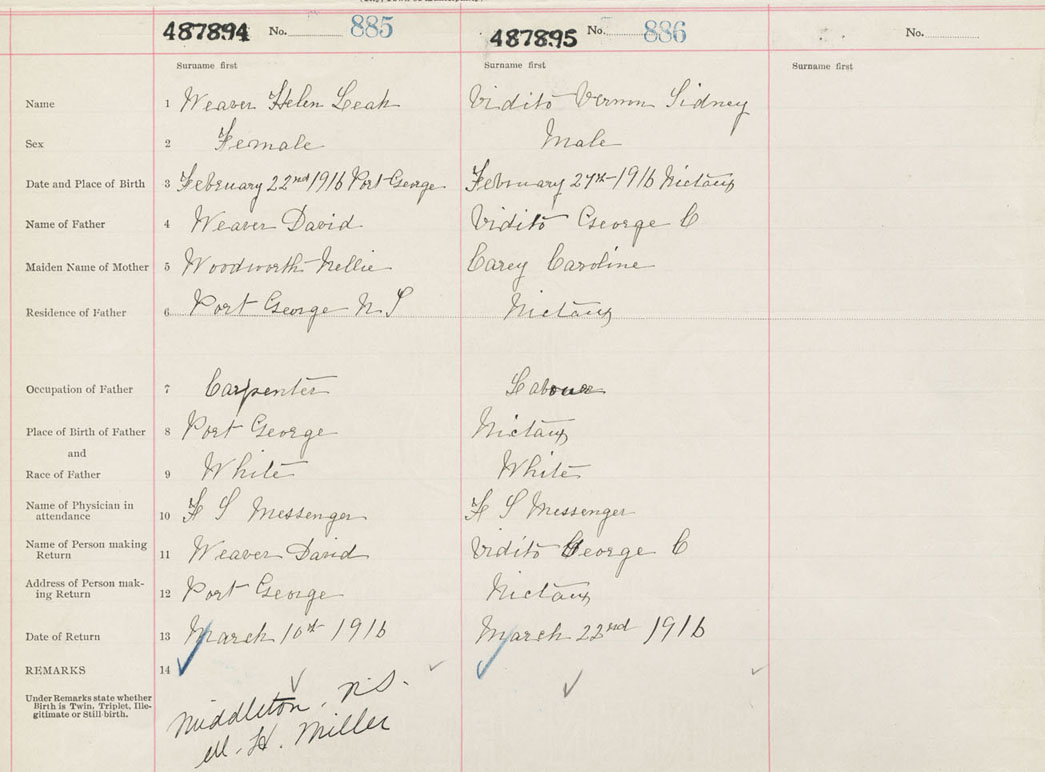 487894 No. 885 487895 No. 886 No.
Surname first Surname first Surname first
Name 1 Weaver Helen Leah Vidito Vernon Sidney
Sex 2 Female Male
Date and Place of Birth 3 February 22nd 1916 Port George February 27th 1916 Nictaux
Name of Father 4 Weaver David Vidito George C
Maiden Name of Mother 5 Woodworth Nellie Carey Caroline
Residence of Father 6 Port George N S Nictaux
Occupation of Father 7 Carpenter Labourer
Place of Birth of Father 8 Port George Nictaux
and
Race of Father 9 White White
Name of Physician in
attendance 10 F S Messenger F S Messenger
Name of Person making
Return 11 Weaver David Vidito George C
Address of Person mak-
ing Return 12 Port George Nictaux
Date of Return 13 March 10th 1916 March 22nd 1916
REMARKS 14
Under Remarks state whether
Birth is Twin, Triplet, Ille-
gitimate or Still-birth.
Middleton, N.S.
M. H. Miller